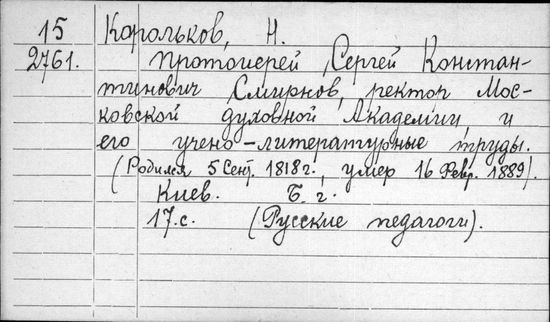 15 Корольков, Н.
2761. Протоиерей Сергей Констан-
тинович Смирнов, ректор Мос-
ковской духовной Академіи, и
его учено-литературные труды.
(Родился 5 Сент. 1818 г., умер 16 Февр. 1889).
Киев. Б. г.
17.с. (Русские педагоги).